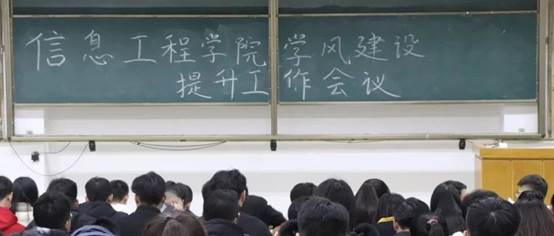 信息工程学院 学风建设
提升工作会议